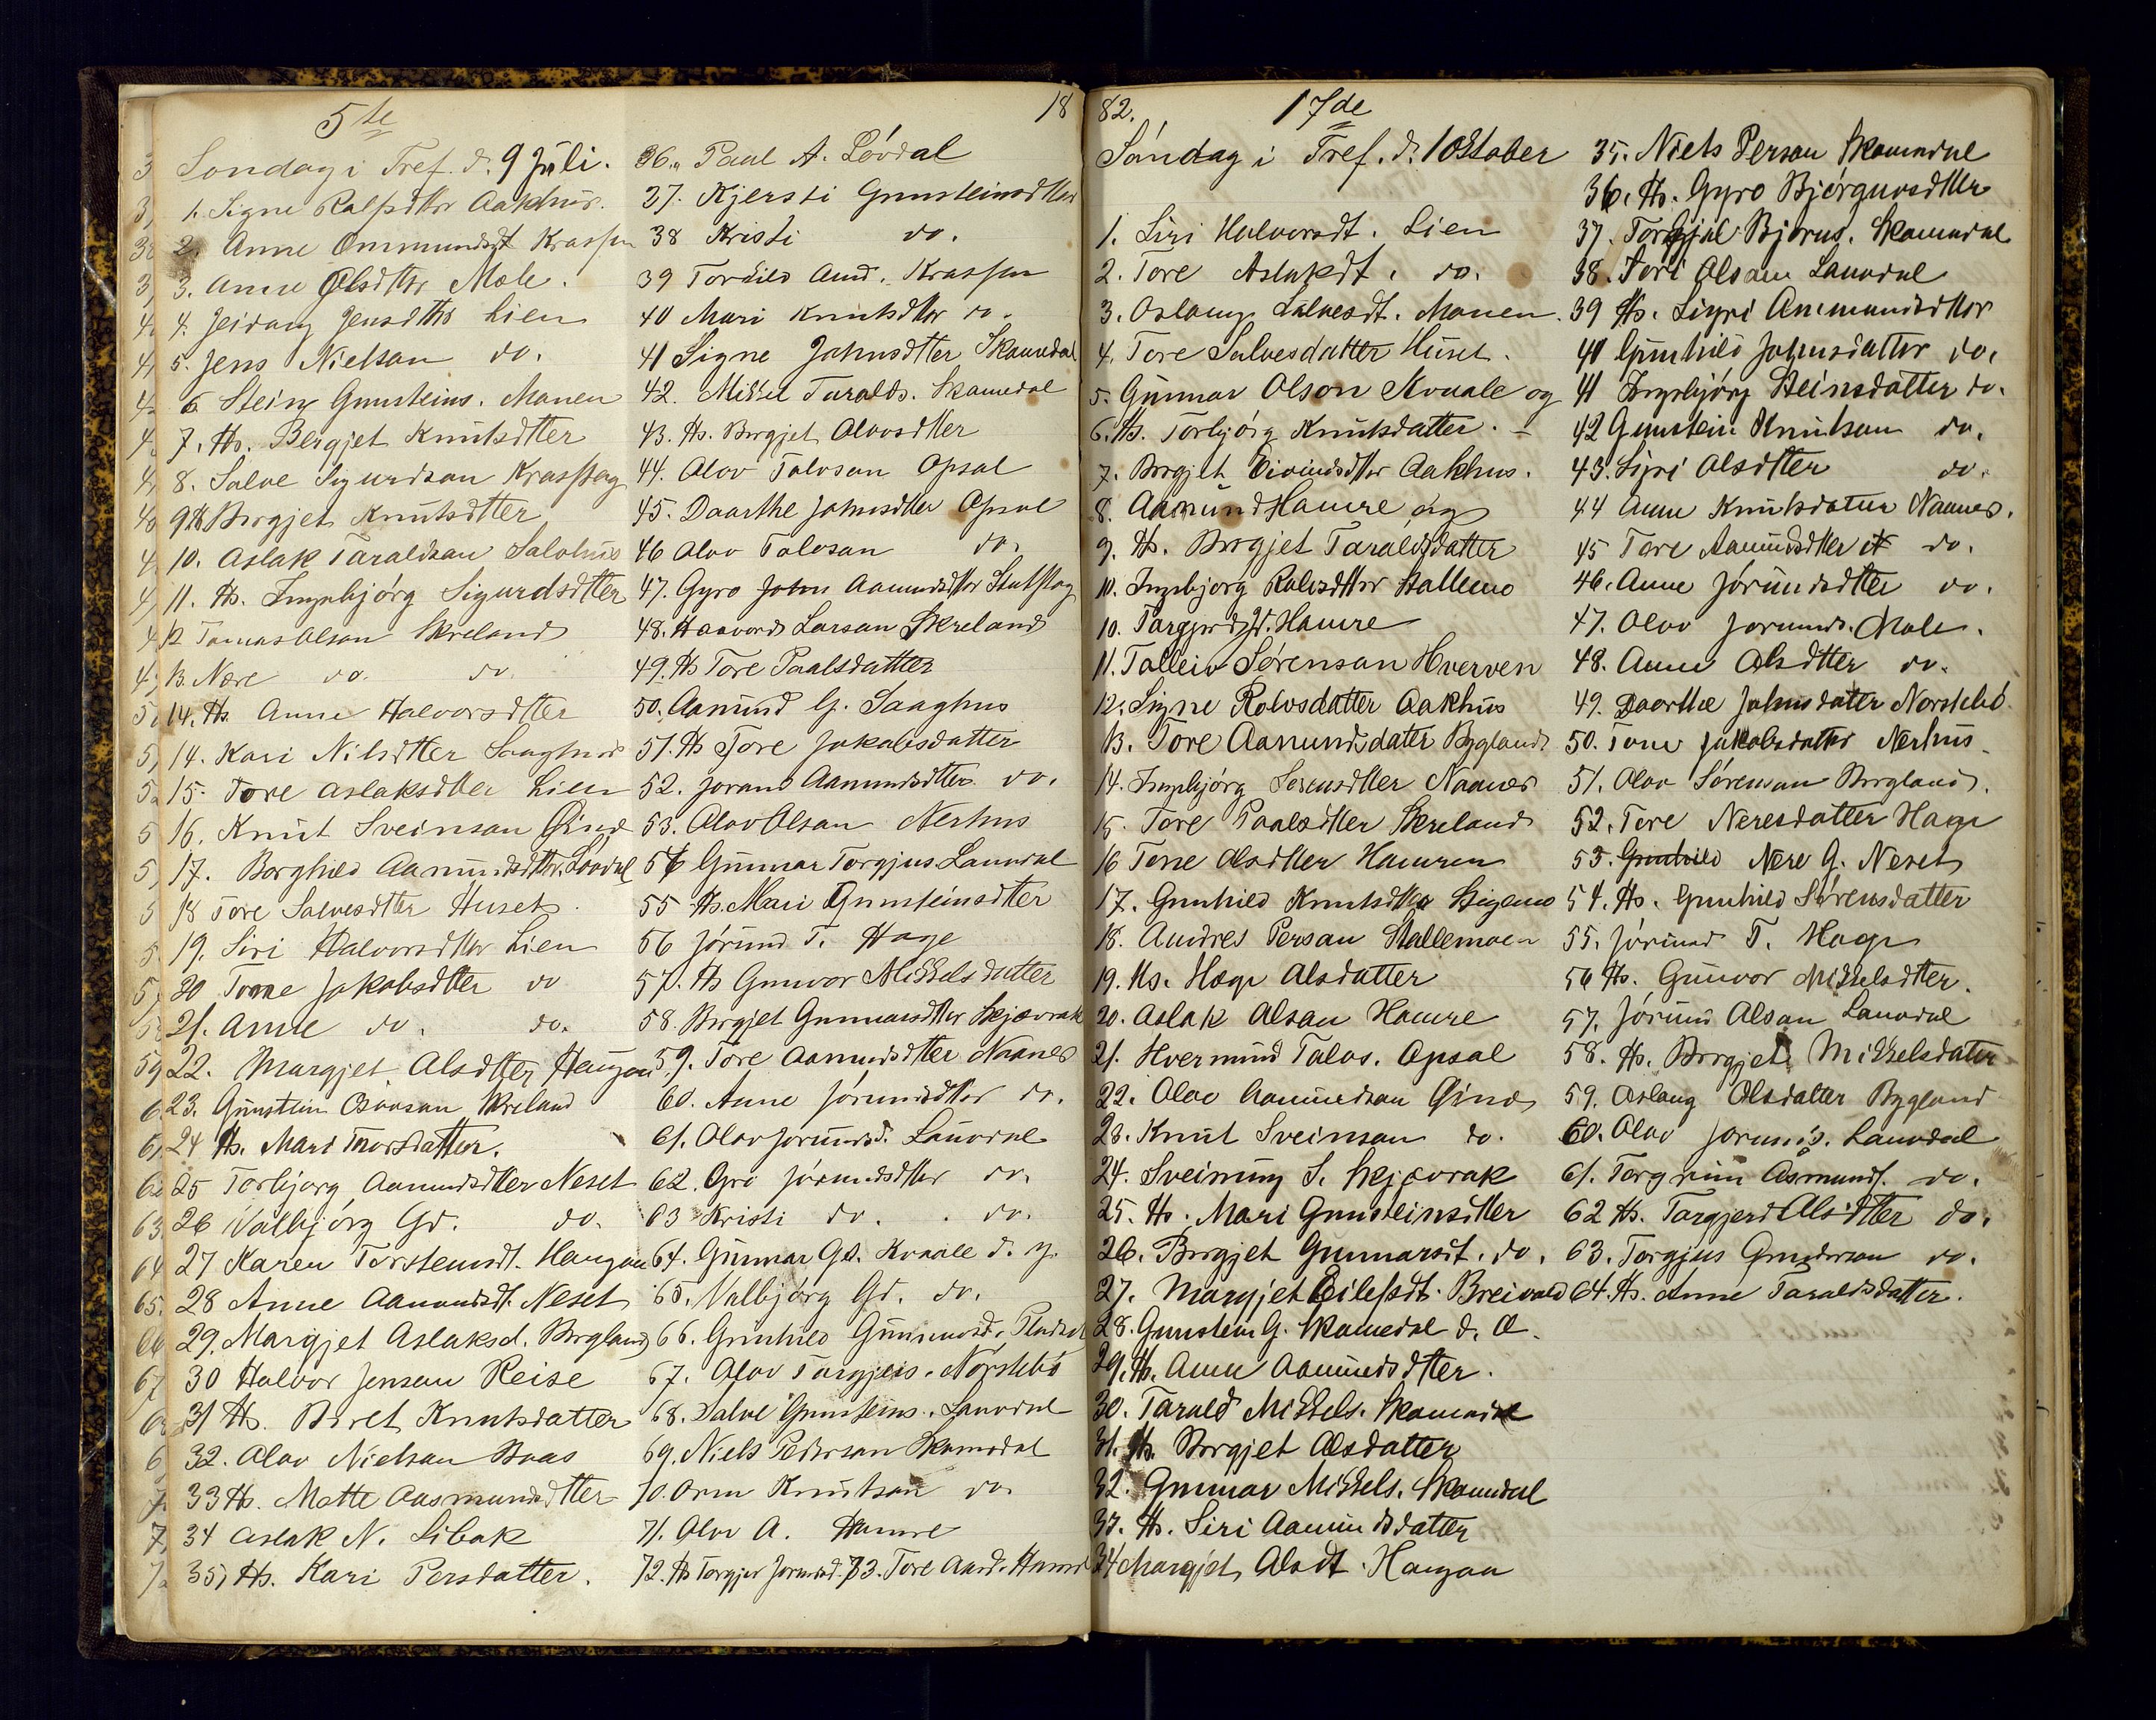 5te
18
Søndag i Tref. d. 9 Júli.
1. Signe Ralfsdttr Aakhús.
2. Anne Ommundsdt
3. Anne Olsdttr Mole.
4. Jeidang Jensdttr Lien
5. Jens Nielsan do.
6 Stein Gunsteins. Manen
7. Hs. Bergjet Knútsdtter
8. Salve Sigurdsan
9 Hs Borgjet Knútsdtter
10. Aslak Taraldsan
11. Hs. Ingebjörg Sigurdsdtter
12 Tomas Olson Skreland
13. Nere do. do.
14. Hs. Anne Halvorsdtter
14. Kari Nilsdtter Saaghus
15. Tore Aslaksdtter Lien
16. Knút Sveinsan
17. Borghild Aanúndsdttr. Lovdal
18 Tore Salvesdtter Huset
19. Siri Halvorsdttr Lien
20 Tonne Jakobsdtter do
21. Anne do. do.
22. Margjet Alsdtter Haugan
23. Gúnstein Osvosan Skreland
24 Hs. Mari Tnorsdatter.
25 Torbjorg Aanundsdtter Neset
26 Valbjörg Gd. do.
27 Karen Torstensdt. Haugan
28 Anne Aanundsdt. Neset
29. Margjet Aslaksd. Borgland
30 Halvor Jensan Heise
31 Hs. Beret Knutsdatter
32. Olav Nielsan Baas
33 Hs. Mette Aasmundsdtter
34 Aslak N. Libak
35, Hs. Kari Persdatter.
36. Paul A. Lövdal
37. Kjersti Gunsteinsdtter
38 Kristi do.
39 Torkild Amd.
40 Mari Knutsdttr do.
41 Signe Johnsdtter Skamedal
42. Mikkel Taralds. Skamedal
43. Hs. Borgjet Olavsdtter
44. Olav Talvsan Opsal
45. Daarthe Johnsdtter Opsal
46 Olav Talvsan do.
47. Gyro John Aanundsdttr
48. Haavord Larsan Skreland
49. Hs Tore Paalsdatter
50. Aanúnd G. Saaghus
51. Hs Tore Jakobsdatter
52. Jorand Aanundsdtter do.
53. Olav Olsan Nerhus
54 Gúnnar Torgjus. Lauvdal
55 Hs. Mari Gunsteinsdtter
56 Jörund T. Hage
57. Hs Gunvor Mikkelsdatter
58. Borgjet Gunnarsdtter Skjævrak
59. Tore Aanundsdtter Naanes
60. Anne Jörundsdttr do.
61. Olav Jorundsd. Lauvdal
62. Gro Jörundsdttr do.
63 Kristi do. do.
64. Gúnnar Gd. Kvaale d. y.
65. Valbjörg Gd. do.
66. Gunhild Gúnnarsd.
67. Olav Torgjus. Norstebö
68. Salve Gunsteins. Lauvdal
69. Niels Pedersan Skamedal
70. Orm Knútsan do.
71. Olav A. Hamre
72. Hs Torgjer Jorundsd. 73. Tore Aasd. Hamre
82.
17de
Søndag i Tref. d. 1 Oktober
1. Siri Halvorsdt. Lien
2. Tore Aslakdt. do.
3. Oslaug Salvesdt. Monen.
4. Tore Salvesdatter Húset.
5. Gúnnar Olson Kvaale og
6. Hs. Torbjörg Knútsdatter.
7. Borgjet Eivindsdttr Aakhus.
8. Aanúnd Hamre og
9. Hs. Borgjet Taraldsdatter
10. Ingebjorg Ralvsdttr Stallemo
10. Torgjerd Jd. Hamre
11. Talleiv Sørensan Hverven
12. Signe Rolvsdatter Aakhús
13. Tore Aanundsdater Bygland
14. Ingebjörg Sorensdtter Naanes
15. Tore Paalsdtter Skreland
16 Tone Olsdtter Hamren
17. Gunhild Knutsdtter
18. Andres Persan Stallemoen
19. Hs. Hæge Alsdatter
20. Aslak Alsan Hamre
21. Hvermúnd Talvs. Opsal
22. Olav Aanúndsan
23. Knút Sveinsan do.
24. Sveinúng S. Skjævrak
25. Hs. Mari Gunsteinsdtter
26. Borgjet Gunnarsdt. do.
27. Margjet Eilefsdt. Breivold
28. Gunstein G. Skamedal d. Æ.
29. Hs. Anne Aanúndsdtter.
30. Tarald Mikkels. Skamedal
31. Hs. Borgjet Olsdatter
32. Gunnar Mikkels. Skamedal
33. Hs. Siri Aanúndsdatter
34 Margjet Alsdt. Haugan
35. Niels Persan Skamedal
36. Hs. Gyro Bjørgúvsdtter
37. Torkjel Bjorns. Skamedal
38. Tori Olsan Lauvdal
39 Hs. Sigri Ammundsdttor
40 Gúnhild Johnsdatter do.
41 Ingebjörg Steinsdatter do.
42 Gunstein Knútsan do.
43. Sigri Olsdtter do.
44 Anne Knútsdatter Naanes.
45 Tore Aanúndsdtter do.
46. Anne Jórúndsdtter do.
47. Olav Jorunds. Mole.
48. Anne Olsdtter do.
49. Daorthe Johnsdater Norstebó
50. Tone Jakobsdatter Nerhús
51. Olav Sørensan Borgland.
52. Tore Neresdatter Hage
53. Gunhild Nere G. Neset
54. Hs. Gunhild Sörensdatter
55. Jörund T. Hage
56 Hs. Gúnvor Mikkelsdtter.
57. Jörúnd Olsan Lauvdal
58. Hs. Borgjet Mikkelsdater
59. Oslaug Olsdatter Bygland
60. Olav Jorunds. Lauvdal
61. Torgrim Åsmunds. do.
62 Hs. Torgjerd Als.dtter do.
63. Torgjus Gundersan do.
64. Hs. Anne Taraldsdatter.